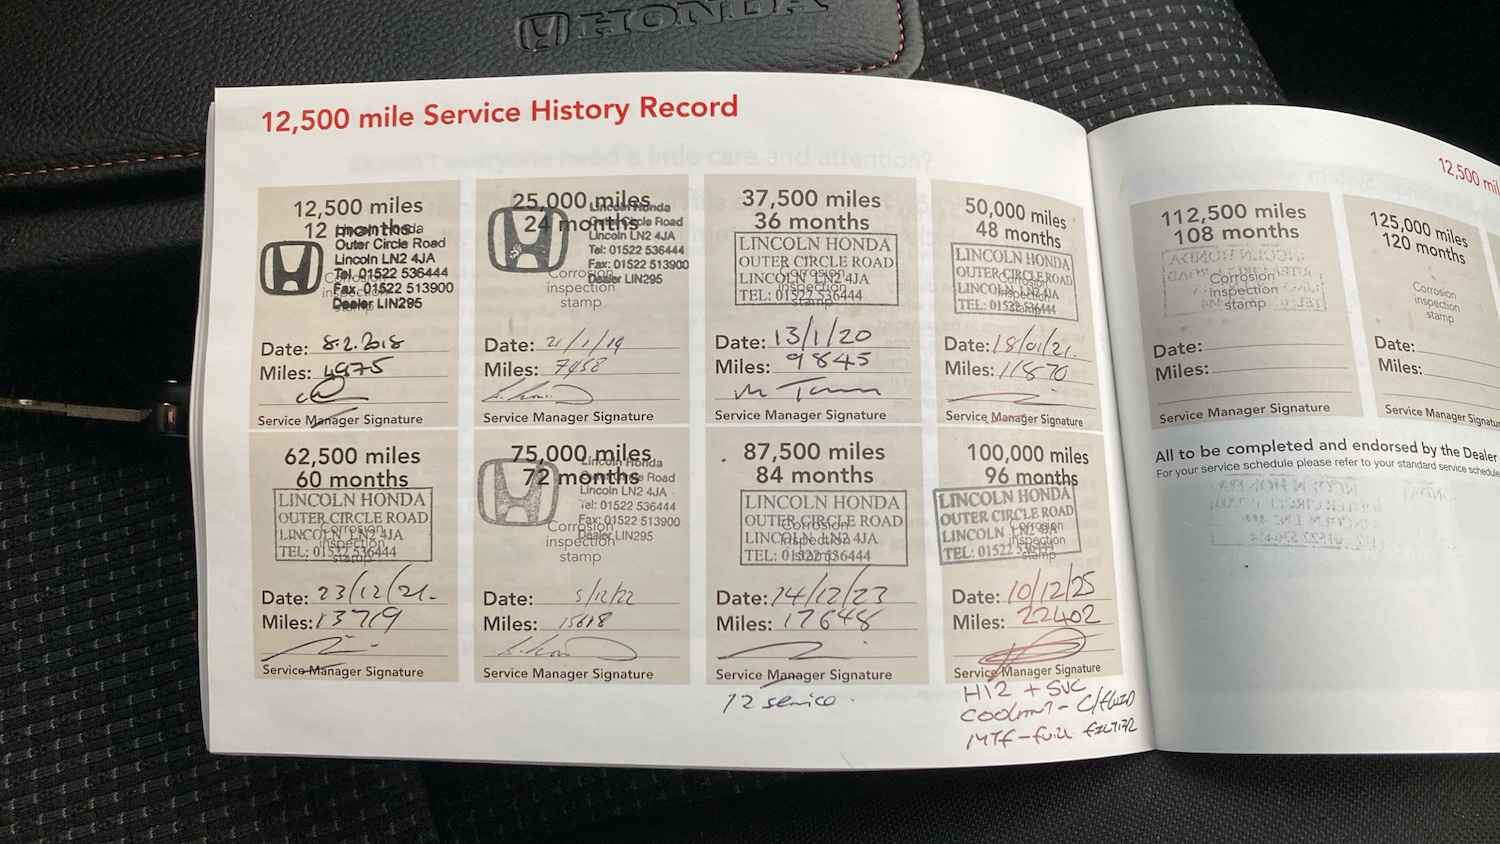 HONDA
12,500 mile Service History Record
12,500 miles
12 months
Lincoln Honda
Outer Circle Road
Lincoln LN2 4JA
Tel. 01522 536444
Fax. 01522 513900
Dealer LIN295
Corrosion
inspection
stamp
Date: 8.2.2018
Miles: 4975
Service Manager Signature
25,000 miles
24 months
Lincoln Honda
Outer Circle Road
Lincoln LN2 4JA
Tel: 01522 536444
Fax: 01522 513900
Dealer LIN295
Corrosion
inspection
stamp
Date: 21/1/19
Miles: 7458
Service Manager Signature
37,500 miles
36 months
LINCOLN HONDA
OUTER CIRCLE ROAD
LINCOLN LN2 4JA
TEL: 01522 536444
Corrosion
inspection
stamp
Date: 13/1/20
Miles: 9845
Service Manager Signature
50,000 miles
48 months
LINCOLN HONDA
OUTER CIRCLE ROAD
LINCOLN LN2 4JA
TEL: 01522 536444
Corrosion
inspection
stamp
Date: 18/01/21.
Miles: 11870
Service Manager Signature
62,500 miles
60 months
LINCOLN HONDA
OUTER CIRCLE ROAD
LINCOLN LN2 4JA
TEL: 01522 536444
Corrosion
inspection
stamp
Date: 23/12/21.
Miles: 13719
Service Manager Signature
75,000 miles
72 months
Lincoln Honda
Outer Circle Road
Lincoln LN2 4JA
Tel: 01522 536444
Fax: 01522 513900
Dealer LIN295
Corrosion
inspection
stamp
Date: 5/12/22
Miles: 15618
Service Manager Signature
87,500 miles
84 months
LINCOLN HONDA
OUTER CIRCLE ROAD
LINCOLN LN2 4JA
TEL: 01522 536444
Corrosion
inspection
stamp
Date: 14/12/23
Miles: 17648
Service Manager Signature
12 service.
100,000 miles
96 months
LINCOLN HONDA
OUTER CIRCLE ROAD
LINCOLN LN2 4JA
TEL: 01522 536444
Corrosion
inspection
stamp
Date: 10/12/25
Miles: 22402
Service Manager Signature
H12 + SVC
Coolant - C/fluid
MTF - fuel filter
12,500 mil
112,500 miles
108 months
Corrosion
inspection
stamp
Date:
Miles:
Service Manager Signature
125,000 miles
120 months
Corrosion
inspection
stamp
Date:
Miles:
Service Manager Signatu
All to be completed and endorsed by the Dealer
For your service schedule please refer to your standard service schedule